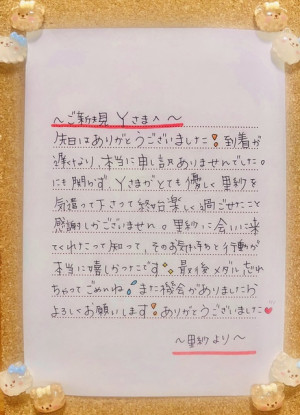 ～ご新規 Yさまへ～
先日はありがとうございました❗到着が
遅くなり、本当に申し訳ありませんでした。
にも関わらず、Yさまがとても優しく里紗を
気遣って下さって終始楽しく過ごせたこと
感謝しかございません。里紗に会いに来
てくれたって知って、そのお気持ちと行動が
本当に嬉しかったです✨最後メダル忘れ
ちゃってごめんね💦また機会がありましたら
よろしくお願いします❗ありがとうございました❤
～里紗より～